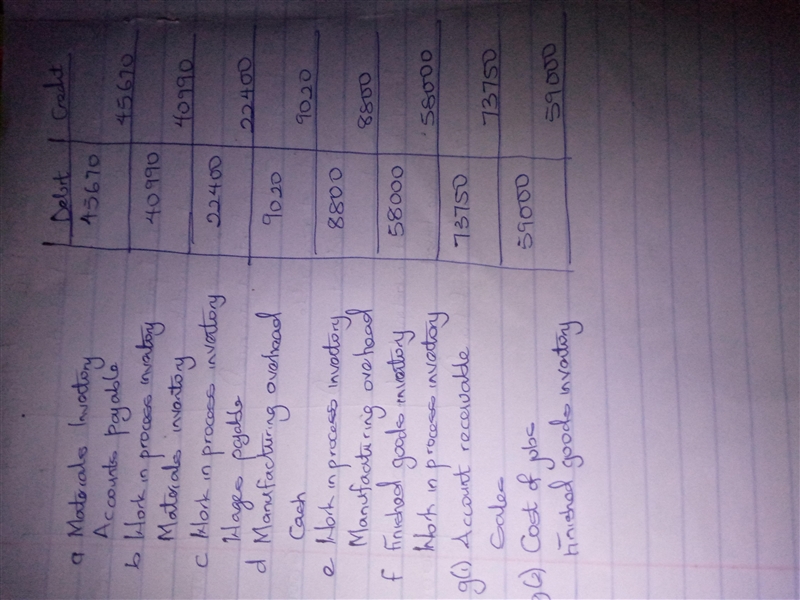 Debit Credit
a Materials Inventory 45670
Accounts Payable 45670
b Work in process inventory 40990
Materials inventory 40990
c Work in process inventory 22400
Wages payable 22400
d Manufacturing overhead 9020
Cash 9020
e Work in process inventory 8800
Manufacturing overhead 8800
f Finished goods inventory 58000
Work in process inventory 58000
g(1) Account receivable 73750
Sales 73750
g(2) Cost of jobs 59000
Finished goods inventory 59000